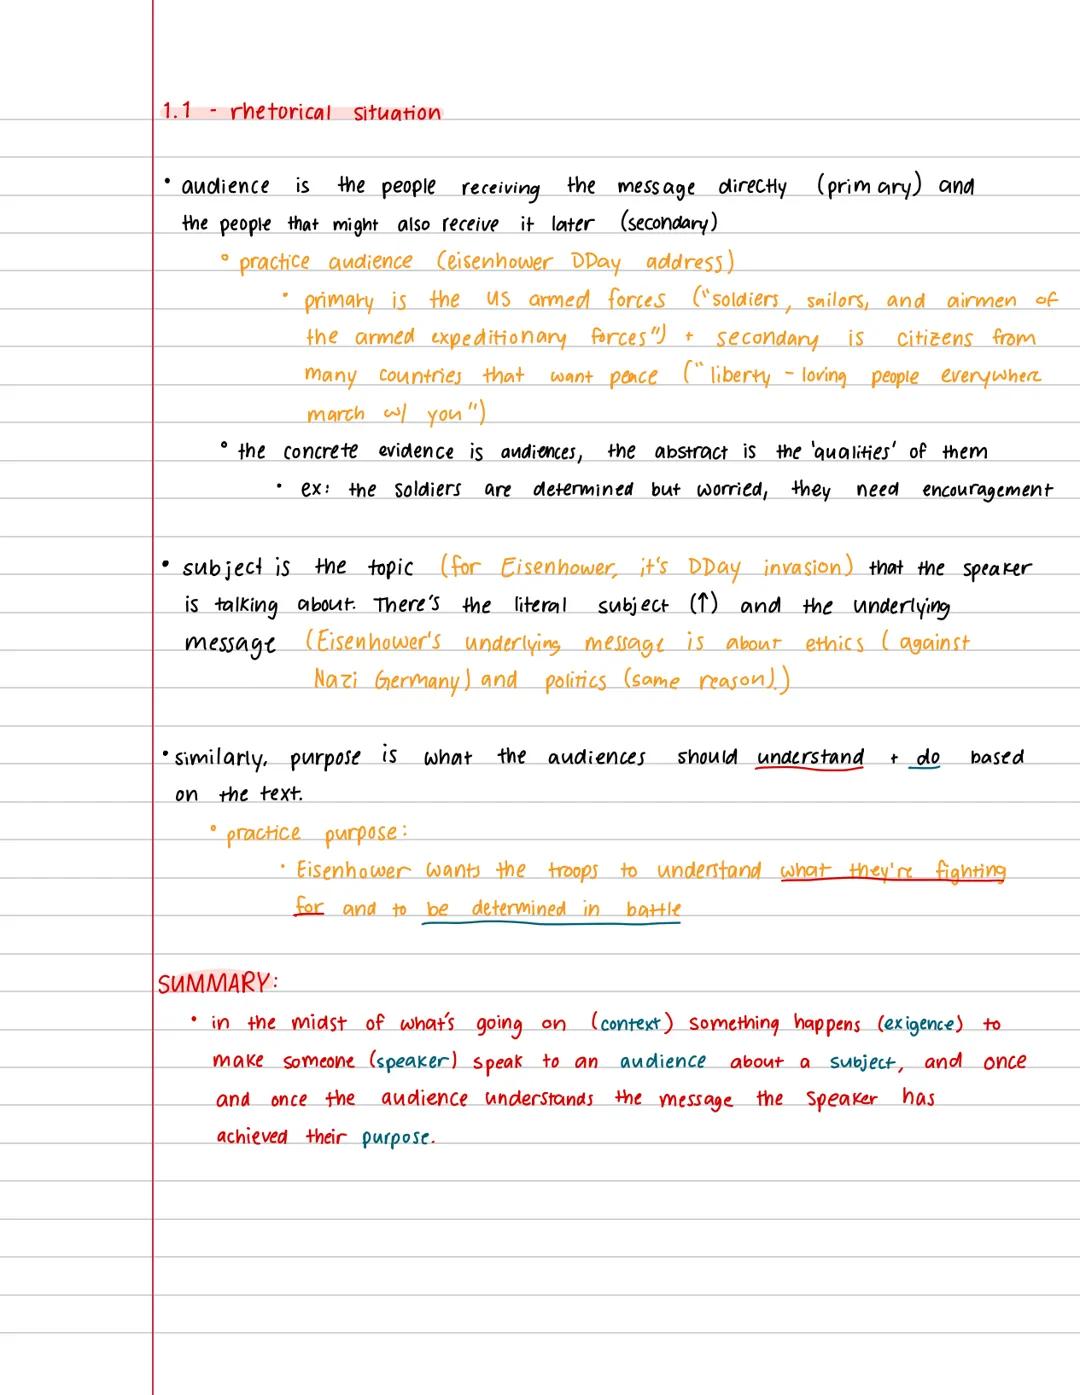 1.1 - rhetorical situation
• audience is the people receiving the message directly (primary) and
the people that might also receive it later (secondary)
◦ practice audience (eisenhower DDay address)
• primary is the US armed forces ("soldiers, sailors, and airmen of
the armed expeditionary forces") + secondary is citizens from
many countries that want peace ("liberty - loving people everywhere
march w/ you")
◦ the concrete evidence is audiences, the abstract is the 'qualities' of them
• ex: the soldiers are determined but worried, they need encouragement
• subject is the topic (for Eisenhower, it's DDay invasion) that the speaker
is talking about. There's the literal subject (↑) and the underlying
message (Eisenhower's underlying message is about ethics (against
Nazi Germany) and politics (same reason).)
• similarly, purpose is what the audiences should understand + do based
on the text.
◦ practice purpose:
• Eisenhower wants the troops to understand what they're fighting
for and to be determined in battle
SUMMARY:
• in the midst of what's going on (context) something happens (exigence) to
make someone (speaker) speak to an audience about a subject, and once
and once the audience understands the message the speaker has
achieved their purpose.